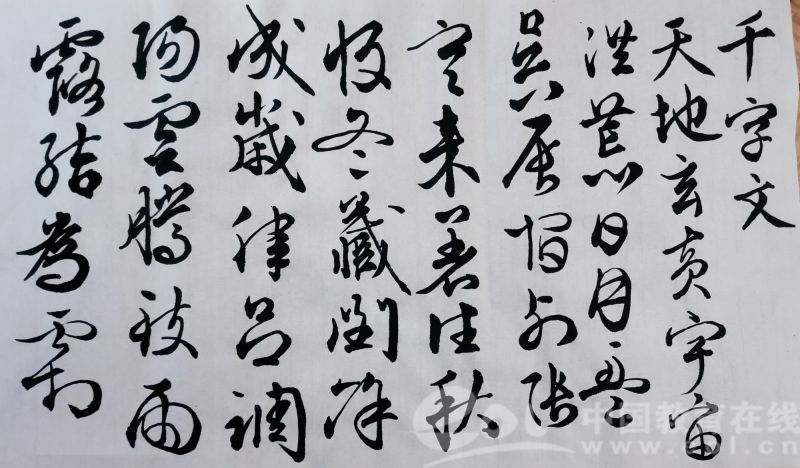 千字文
天地玄黄宇宙
洪荒日月盈
昃辰宿列張
寒来暑往秋
收冬藏閏餘
成歲律吕調
陽雲騰致雨
露結為霜
中国教育在线
www.eol.cn